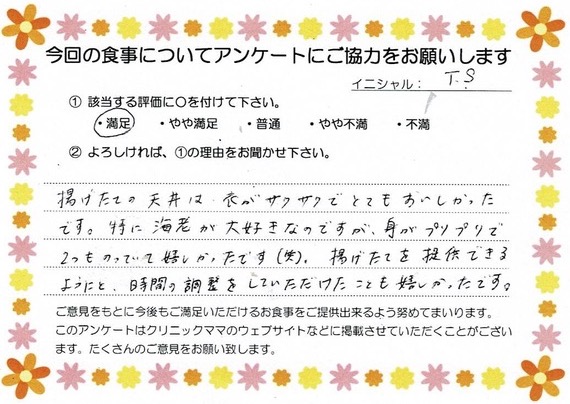 今回の食事についてアンケートにご協力をお願いします
イニシャル: T.S
① 該当する評価に○を付けて下さい。
・満足 ・やや満足 ・普通 ・やや不満 ・不満
② よろしければ、①の理由をお聞かせ下さい。
揚げたての天丼は、衣がサクサクでとてもおいしかった
です。特に海老が大好きなのですが、身がプリプリで
2つものっていて嬉しかったです(笑)。揚げたてを提供できる
ようにと、時間の調整をしていただけたことも嬉しかったです。
ご意見をもとに今後もご満足いただけるお食事をご提供出来るよう努めてまいります。
このアンケートはクリニックママのウェブサイトなどに掲載させていただくことがござい
ます。たくさんのご意見をお願い致します。